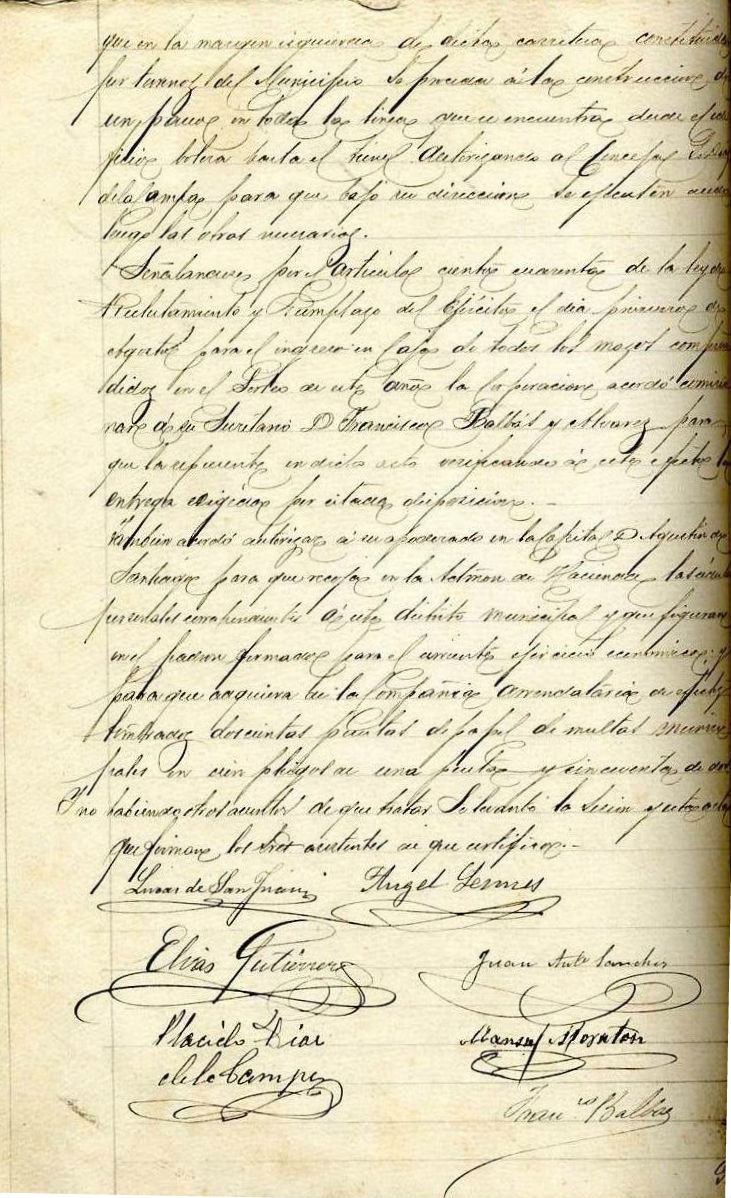 que en la margen izquierda de dicha carretera constituida
por terrenos del Municipio se proceda á la construccion de
un paseo en toda la linea que se encuentra desde el edi
ficio hasta el tunel autorizando al Concejal
de la Campa para que bajo su direccion se ejecuten desde
luego las obras necesarias.
Señalandose por el artículo ciento cuarenta de la ley de
Reclutamiento y Reemplazo del Ejército el dia primero de
Agosto para el ingreso en Caja de todos los mozos compren
didos en el Sorteo de este año la Corporacion acordó comisio
nar á su Secretario D Francisco Balbás y Alvarez para
que la represente en dicho acto verificando á este efecto la
entrega exigida por citada disposicion.-
Tambien acordó autorizar á su apoderado en la Capital D Agustin de
Santiago para que recoja en la Admon de Hacienda las cédulas
personales correspondientes á este distrito municipal y que figuran
en el padron formado para el corriente ejercicio economico: y
para que adquiera de la Compañia arrendataria de efectos
timbrados doscientas pesetas de papel de multas munici
pales en cien pliegos de una peseta y cincuenta de dos
Y no habiendo otros asuntos de que tratar Se levantó la sesion y esta acta
que firman los Sres asistentes de que certifico.-
Lucas de San Juan Angel
Elias Gutiérrez Juan Anto Sanchez
Placido Diaz Manuel
de la Campa
Franco Balbás